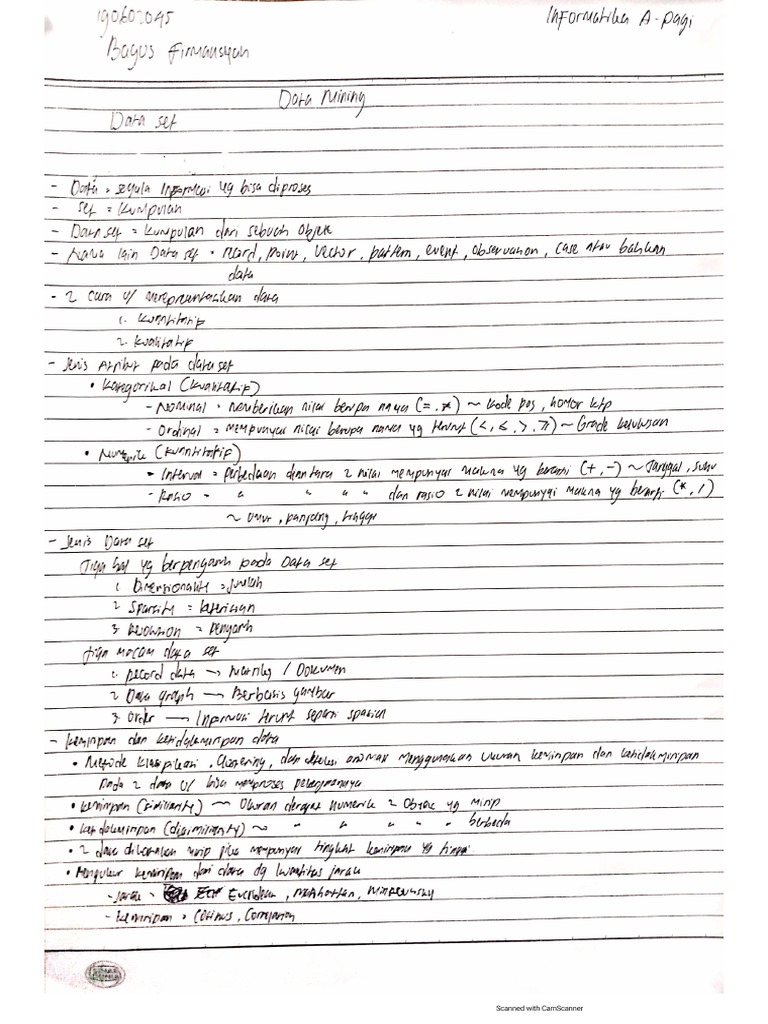 190602045 Informatika A-pagi
Bagus Firmansyah
Data Mining
Data set
- Data = segala informasi yg bisa diproses
- Set = kumpulan
- Data set = kumpulan dari sebuah objek
- Nama lain Data set = record, point, vector, pattern, event, observation, case atau bahkan
data
- 2 cara u/ merepresentasikan data
1. kuantitatif
2. kualitatif
- Jenis Atribut pada data set
• Kategorikal (kualitatif)
- Nominal = memberikan nilai berupa nama (=, ≠) ~ kode pos, nomor ktp
- Ordinal = mempunyai nilai berupa nama yg terurut (<, ≤, >, ≥) ~ Grade kelulusan
• Numerik (kuantitatif)
- Interval = perbedaan diantara 2 nilai mempunyai makna yg berarti (+, -) ~ Tanggal, suhu
- Rasio = " " " " dan rasio 2 nilai mempunyai makna yg berarti (*, /)
~ Umur, panjang, tinggi
- Jenis Data set
Tiga hal yg berpengaruh pada Data set
1. Dimensionality = jumlah
2. Sparsity =
3. Resolusion = pengaruh
Tiga macam data set
1. Record data → Matriks / Dokumen
2. Data graph → Berbasis gambar
3. Order → Informasi terurut seperti spasial
- Kemiripan dan ketidakmiripan data
• Metode klasifikasi, clustering, dan deteksi anomali menggunakan ukuran kemiripan dan ketidakmiripan
pada 2 data u/ bisa memproses pekerjaannya
• Kemiripan (similiarity) ~ Ukuran derajat numerik 2 Objek yg mirip
• Ketidakmiripan (disimiliarity) ~ " " " " " berbeda
• 2 data dikatakan mirip jika mempunyai tingkat kemiripan yg tinggi
• Mengukur kemiripan dari data dg kuantitas jarak
- Jarak = Euclidean, Manhattan, Minkowsky
- Kemiripan = Cosinus, Correlation
Scanned with CamScanner